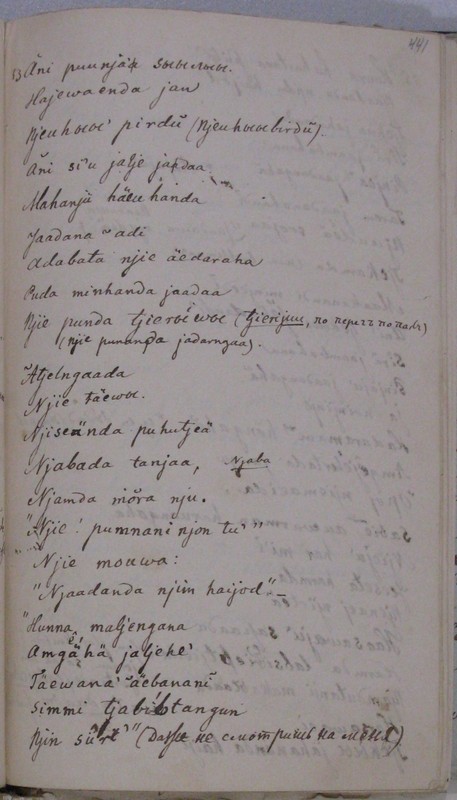 441
13 Äni puunjäk
Hajewaenda jan
Njeuhoeoe' pirdű (Njeuhoeoebirdű).
Äni si'u jalje jaedaa
Mahanjü häeuhanda
Jaadana "adi
Adabata njie äedaraha
Puda minhanda jaadaa
Njie punda (tjierijuu,
(njie punanda jadarngaa).
"Atjelngaada
Njie täewoe.
Njiseända puhutjeä
Njabada tanjaa, Njaba
Njamda möra nju.
"Njie! pumnani njon tu'"
"Njie mouwa:
"Njaadanda njim haijod"_
"Hunna, maljengana
Amgähä jaljehe'
Täewana' "äebanani
Simmi tjabibtangun
Njin sürt" (Даже не смотришь на меня)